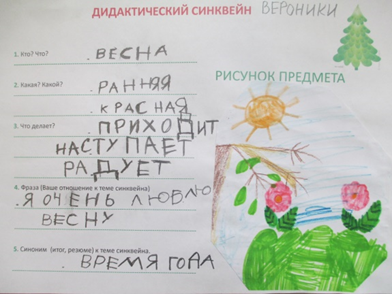 ДИДАКТИЧЕСКИЙ СИНКВЕЙН ВЕРОНИКИ
1. Кто? Что?
ВЕСНА
2. Какая? Какой?
РАННЯЯ
КРАСНАЯ
РИСУНОК ПРЕДМЕТА
3. Что делает?
ПРИХОДИТ
НАСТУПАЕТ
РАДУЕТ
4. Фраза (Ваше отношение к теме синквейна)
Я ОЧЕНЬ ЛЮБЛЮ
ВЕСНУ
5. Синоним (итог, резюме) к теме синквейна.
ВРЕМЯ ГОДА